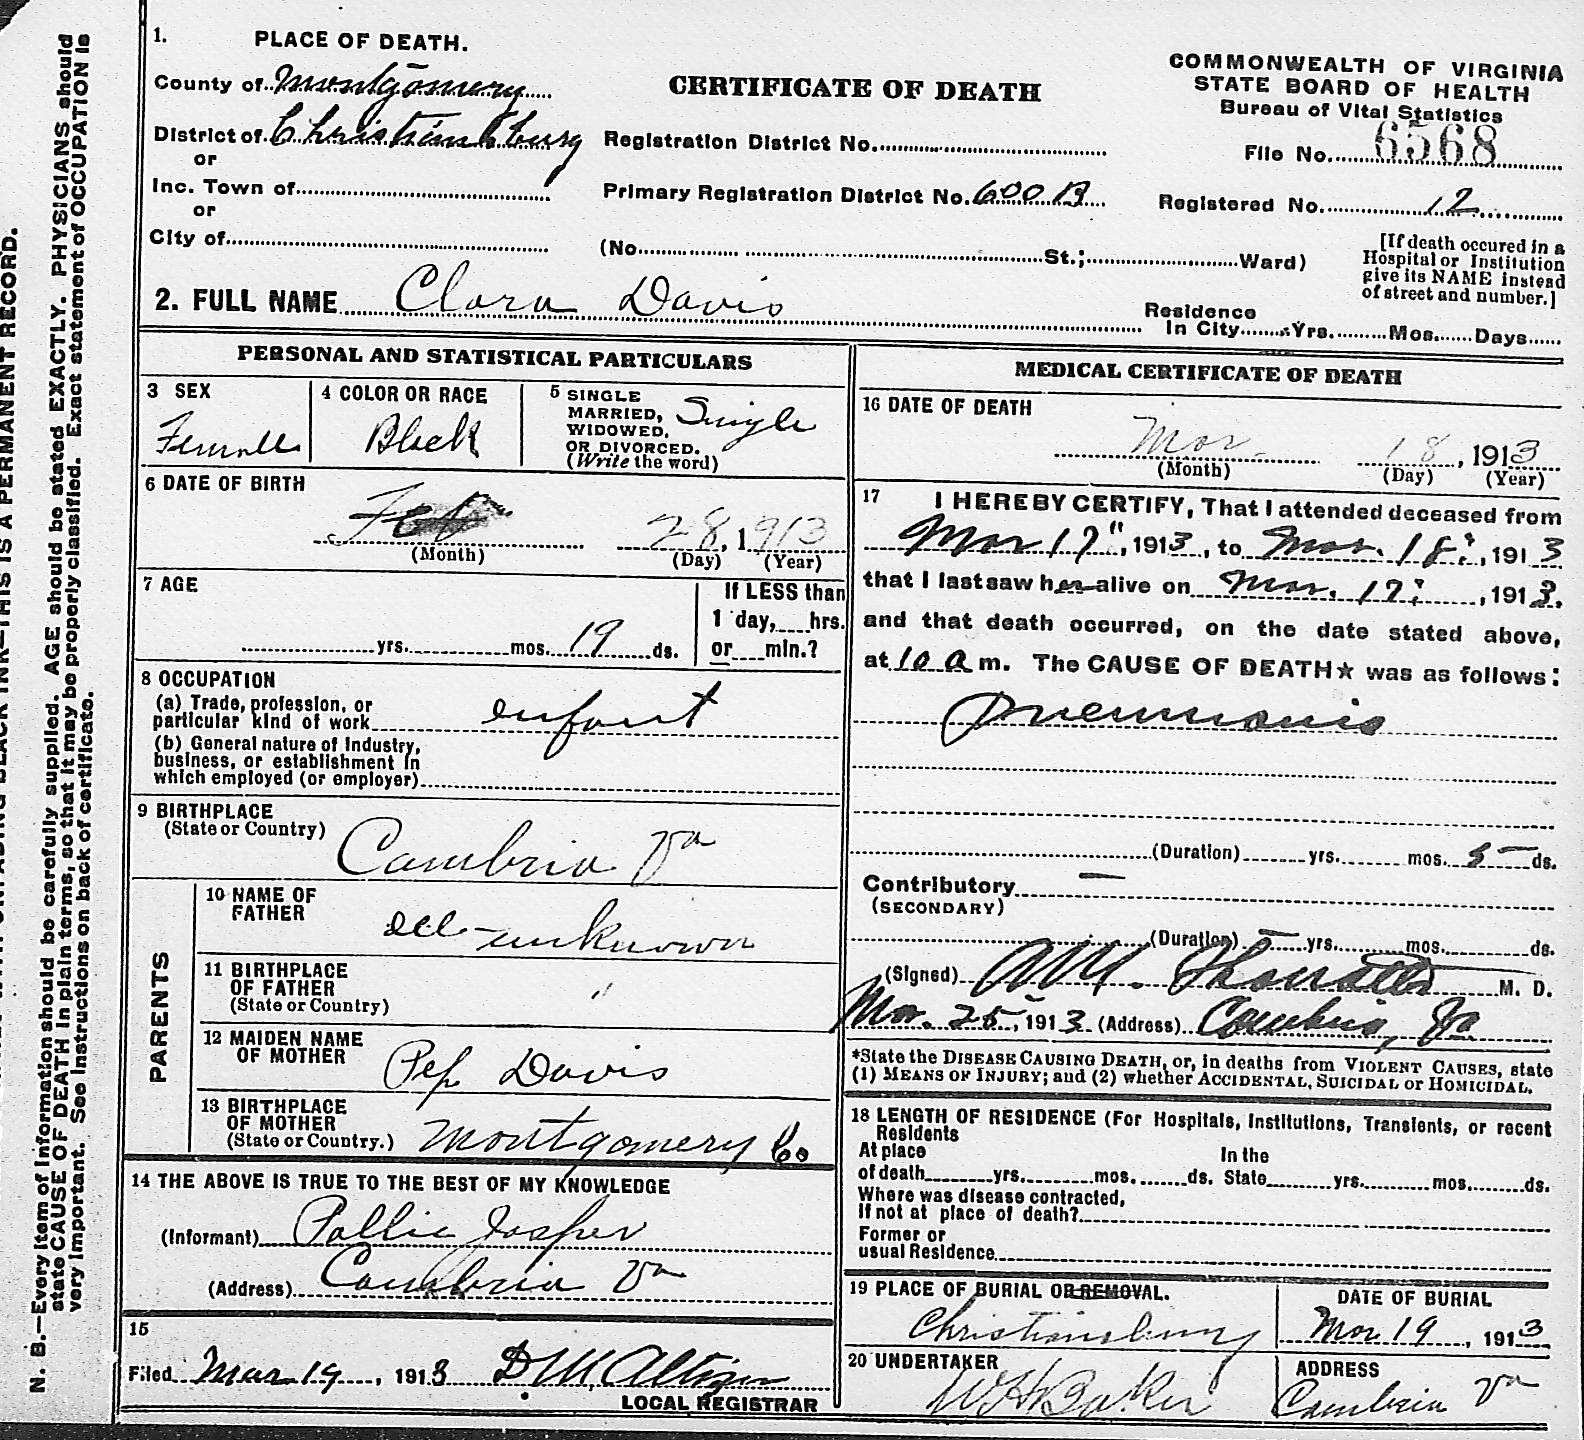 1. PLACE OF DEATH.
County of Montgomery
District of Christiansburg
or
Inc. Town of
or
City of
CERTIFICATE OF DEATH
Registration District No.
Primary Registration District No. 600 B
(No St.; Ward)
COMMONWEALTH OF VIRGINIA
STATE BOARD OF HEALTH
Bureau of Vital Statistics
File No. 6568
Registered No. 12
[If death occured in a
Hospital or Institution
give its NAME instead
of street and number.]
2. FULL NAME Clara Davis
Residence
In City Yrs. Mos. Days
PERSONAL AND STATISTICAL PARTICULARS
3 SEX
Female
4 COLOR OR RACE
Black
5 SINGLE
MARRIED,
WIDOWED,
OR DIVORCED.
(Write the word)
Single
6 DATE OF BIRTH
Feb 28, 1913
(Month) (Day) (Year)
7 AGE
yrs. mos. 19 ds.
If LESS than
1 day, hrs.
or min.?
8 OCCUPATION
(a) Trade, profession, or
particular kind of work enfant
(b) General nature of Industry,
business, or establishment in
which employed (or employer)
9 BIRTHPLACE
(State or Country)
Cambria Va
PARENTS
10 NAME OF
FATHER
unknown
11 BIRTHPLACE
OF FATHER
(State or Country)
"
12 MAIDEN NAME
OF MOTHER
Pep Davis
13 BIRTHPLACE
OF MOTHER
(State or Country.) Montgomery Co
14 THE ABOVE IS TRUE TO THE BEST OF MY KNOWLEDGE
(Informant) Pollie Jasper
(Address) Cambria Va
15
Filed Mar 19, 1913 D W Altizer
LOCAL REGISTRAR
MEDICAL CERTIFICATE OF DEATH
16 DATE OF DEATH
Mar. 18, 1913
(Month) (Day) (Year)
17 I HEREBY CERTIFY, That I attended deceased from
Mar 17", 1913, to Mar. 18", 1913
that I last saw her alive on Mar. 17", 1913.
and that death occurred, on the date stated above,
at 10 a m. The CAUSE OF DEATH★ was as follows:
Pneumonia
(Duration) yrs. mos. 5 ds.
Contributory —
(SECONDARY)
(Duration) — yrs. mos. ds.
(Signed) M. D.
Mar. 25, 1913 (Address) Cambria, Va
*State the DISEASE CAUSING DEATH, or, in deaths from VIOLENT CAUSES, state
(1) MEANS OF INJURY; and (2) whether ACCIDENTAL, SUICIDAL or HOMICIDAL.
18 LENGTH OF RESIDENCE (For Hospitals, Institutions, Transients, or recent
Residents
At place In the
of death yrs. mos. ds. State yrs. mos. ds.
Where was disease contracted,
If not at place of death?
Former or
usual Residence
19 PLACE OF BURIAL OR REMOVAL.
Christiansburg
DATE OF BURIAL
Mar 19, 1913
20 UNDERTAKER
W H Barker
ADDRESS
Cambria Va
N. B.—Every item of information should be carefully supplied. AGE should be stated EXACTLY. PHYSICIANS should
state CAUSE OF DEATH in plain terms, so that it may be properly classified. Exact statement of OCCUPATION is
very important. See instructions on back of certificate.
THIS IS A PERMANENT RECORD.